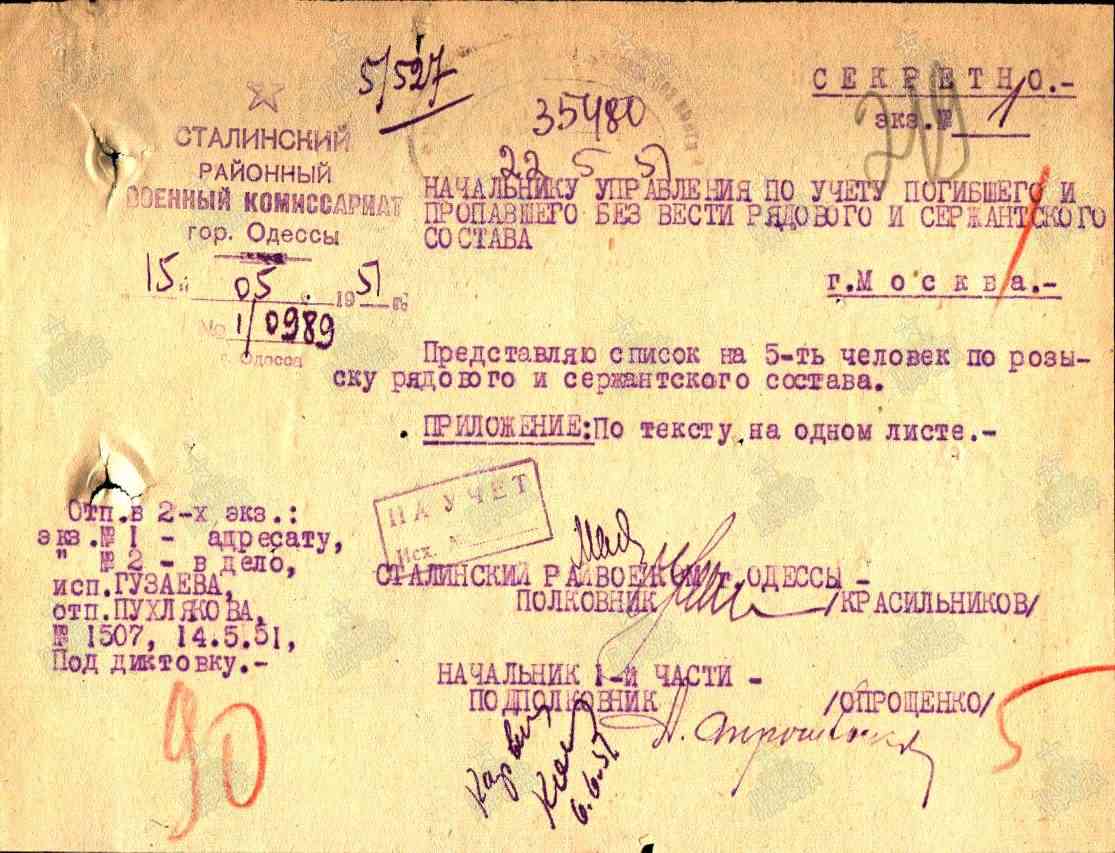 5/527
35480
22 5 51
СЕКРЕТНО.-
экз.№ 1
219
СТАЛИНСКИЙ
РАЙОННЫЙ
ВОЕННЫЙ КОМИССАРИАТ
гор. Одессы
15 " 05 . 1951 г.
№ 1/0989
г. Одесса
НАЧАЛЬНИКУ УПРАВЛЕНИЯ ПО УЧЕТУ ПОГИБШЕГО И
ПРОПАВШЕГО БЕЗ ВЕСТИ РЯДОВОГО И СЕРЖАНТСКОГО
СОСТАВА
г.Москва.-
Представляю список на 5-ть человек по розы-
ску рядового и сержантского состава.
ПРИЛОЖЕНИЕ:По тексту на одном листе.-
НА УЧЕТ
Исх. №
Отп.в 2-х экз.:
экз.№ 1 - адресату,
" № 2 - в дело,
исп.ГУЗАЕВА,
отп.ПУХЛЯКОВА,
№ 1507, 14.5.51,
Под диктовку.-
СТАЛИНСКИЙ РАЙВОЕНКОМ г.ОДЕССЫ -
ПОЛКОВНИК /КРАСИЛЬНИКОВ/
НАЧАЛЬНИК 1-й ЧАСТИ -
ПОДПОЛКОВНИК /ОПРОЩЕНКО/
6.6.51
90
5